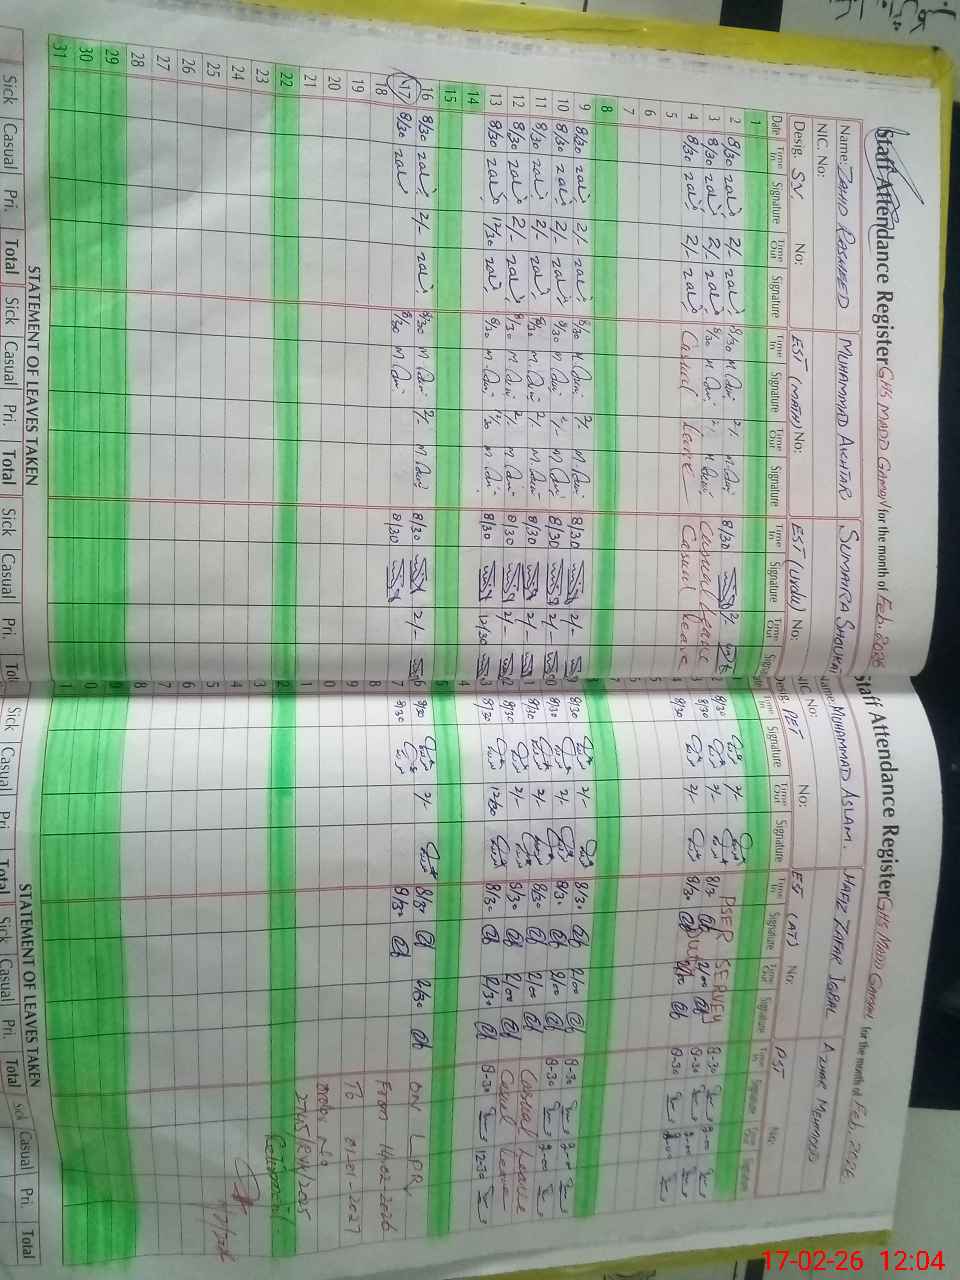 Staff Attendance Register GHS MADD GAMBN for the month of Feb. 2026
Name: ZAHID RASHEED MUHAMMAD AKHTAR SUMAIRA SHOUKAT
NIC. No:
Desig. SV. No: EST (MATH) No: EST (Urdu) No:
Date Time In Signature Time Out Signature Time In Signature Time Out Signature Time In Signature Time Out
1
2 8/30 2/- 8/30 2/- 8/30 2/-
3 8/30 2/- 8/30 2/- Casual Leave
4 8/30 2/- Casual Leave Casual Leave
5
6
7
8
9 8/30 2/- 8/30 2/- 8/30 2/-
10 8/30 2/- 8/30 2/- 8/30 2/-
11 8/30 2/- 8/30 2/- 8/30 2/-
12 8/30 2/- 8/30 2/- 8/30 2/-
13 8/30 12/30 8/30 12/30 8/30 12/30
14
15
16 8/30 2/- 8/30 2/- 8/30 2/-
17 8/30 8/30 8/30
18
19
20
21
22
23
24
25
26
27
28
29
30
31
STATEMENT OF LEAVES TAKEN
Sick Casual Pri. Total Sick Casual Pri. Total Sick Casual Pri.
Staff Attendance Register GHS MADD GAMBN for the month of Feb. 2026
Name: MUHAMMAD ASLAM. HAFIZ ZAFAR IQBAL AZHAR MEHMOOD
NIC No:
Desig. PET No: EST (AT) No: PST No:
Time In Signature Time Out Signature Time In Signature Time Out Signature Time In Signature Out Signature
8/30 2/- PSER SERVEY 8-30 2-00
8/30 2/- 8/30 2/00 8-30 2-00
8/30 2/- 8/30 Duty 2/00 8-30 2-00
8/30 2/- 8/30 2/00 8-30 2-00
8/30 2/- 8/30 2/00 8-30 2-00
8/30 2/- 8/30 2/00 Casual Leave
8/30 2/- 8/30 2/00 Casual Leave
8/30 12/30 8/30 12/30 8-30 12-30
8/30 2/- 8/30 2/30 ON LPR
8/30 8/30
From 14-02-2026
To 01-01-2027
2745/RYK/2025
STATEMENT OF LEAVES TAKEN
Sick Casual Pri Total Sick Casual Pri. Total Sick Casual Pri. Total
17-02-26 12:04